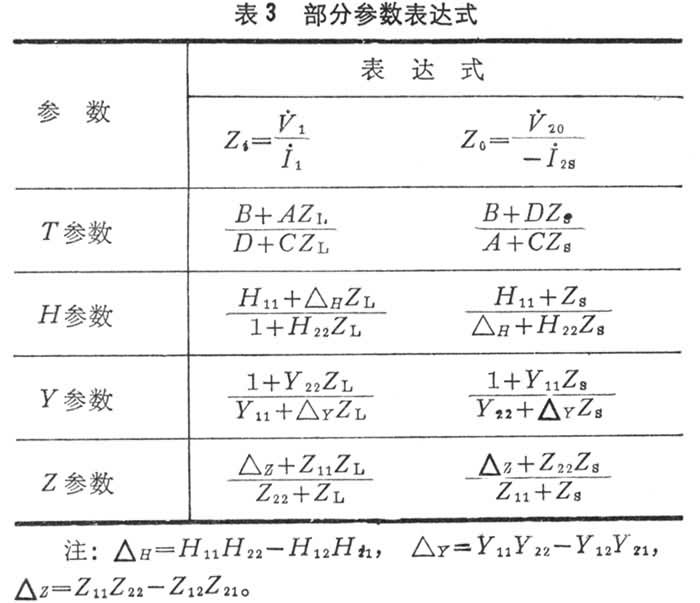 表3 部分参数表达式
参 数
表 达 式
Z_i=V̇_1/İ_1 Z_0=V̇_20/-İ_2S
T参数 B+AZ_L/D+CZ_L B+DZ_s/A+CZ_S
H参数 H_11+△_HZ_L/1+H_22Z_L H_11+Z_S/△_H+H_22Z_S
Y参数 1+Y_22Z_L/Y_11+△_YZ_L 1+Y_11Z_S/Y_22+△_YZ_S
Z参数 △_Z+Z_11Z_L/Z_22+Z_L △_Z+Z_22Z_S/Z_11+Z_S
注：△_H=H_11H_22-H_12H_21, △_Y=Y_11Y_22-Y_12Y_21,
△_Z=Z_11Z_22-Z_12Z_21。